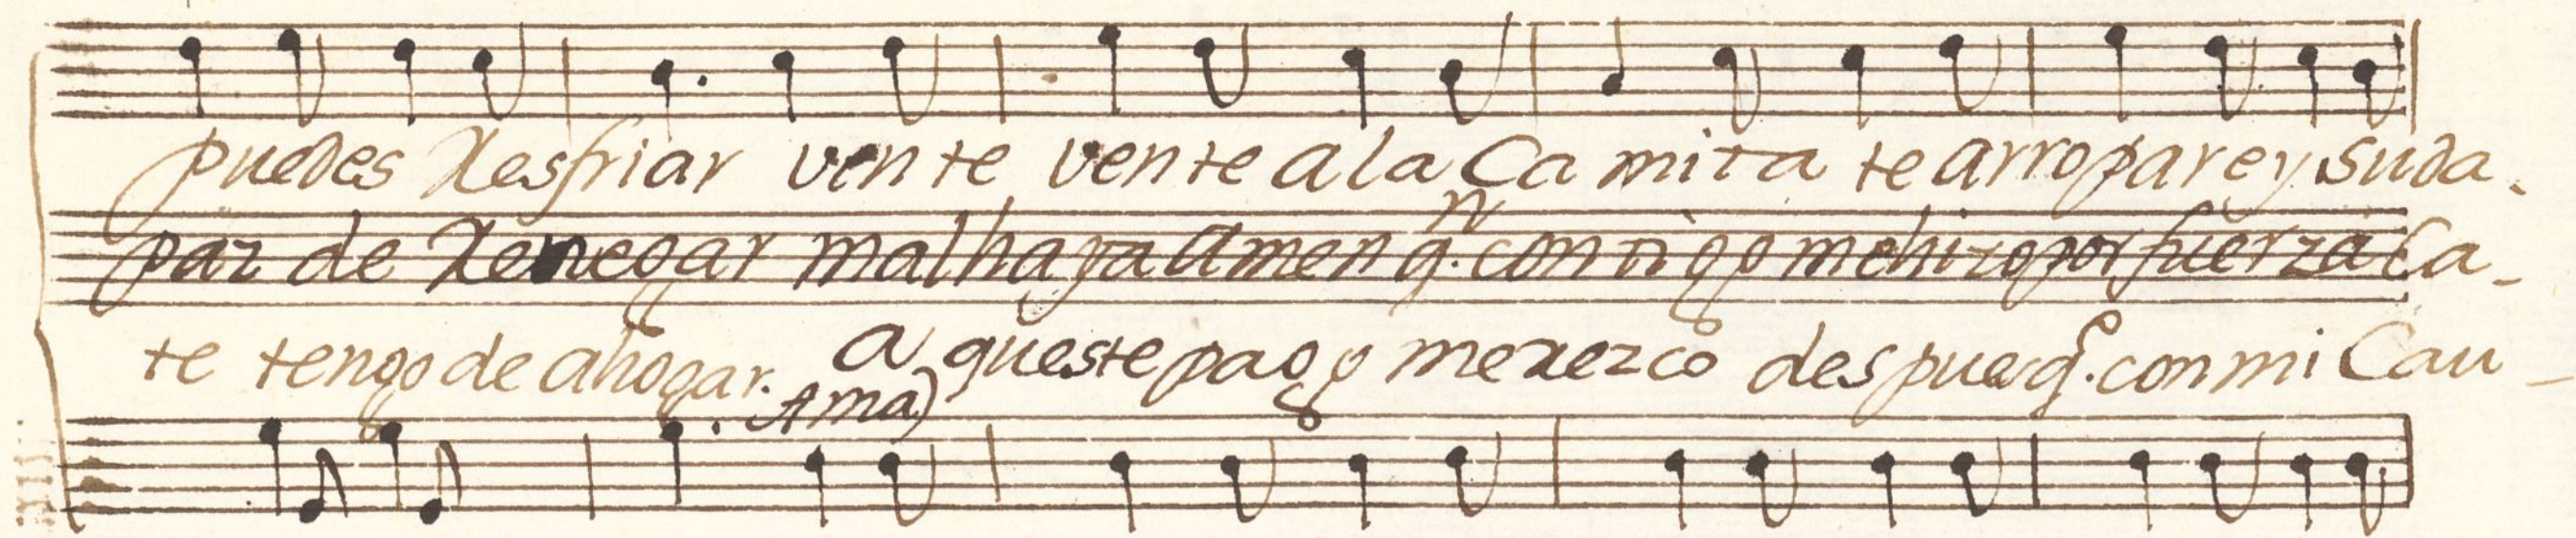 puedes Resfriar vente vente a la Camita te arropare y suda-
paz de Renegar mal haya amen qn. contigo me hizo por fuerza Ca-
te tengo de ahogar. a queste pago merezco despues q.e con mi Cau-
Ama)